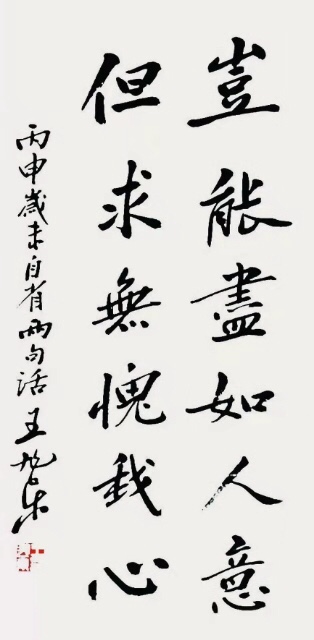 豈能盡如人意
但求無愧我心
丙申歲末自省兩句話王旭东